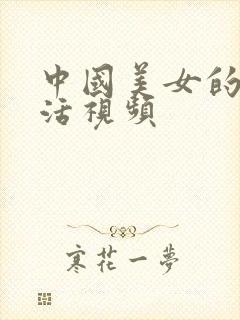 中國美女的
活視頻
寒花一夢